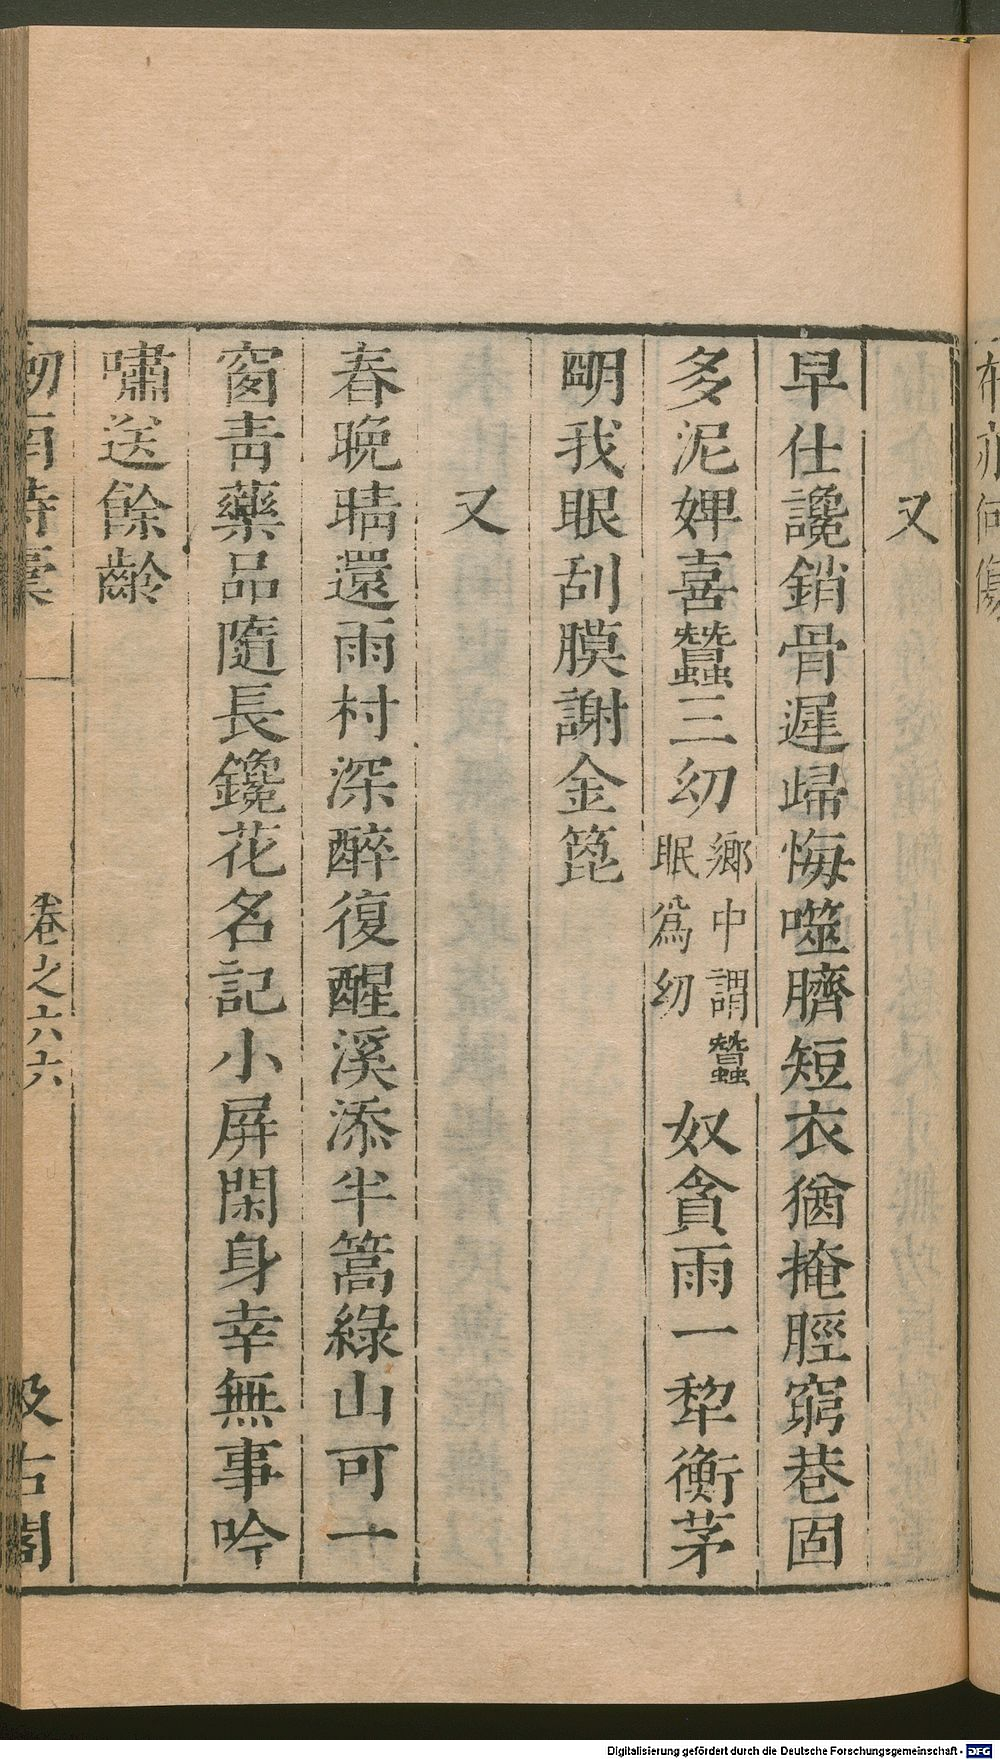 又
早仕讒銷骨遲歸悔噬臍短衣猶掩脛窮巷固
多泥婢喜蠶三幼鄉中謂蠶眠爲幼奴貪雨一犂衡茅
朙我眼刮膜謝金箆
又
春晚晴還雨村深醉復醒溪添半篙綠山可一
窗靑藥品隨長鑱花名記小屏閑身幸無事吟
嘯送餘齡
劎南詩稾 卷之六六 汲古閣
Digitalisierung gefördert durch die Deutsche Forschungsgemeinschaft - DFG